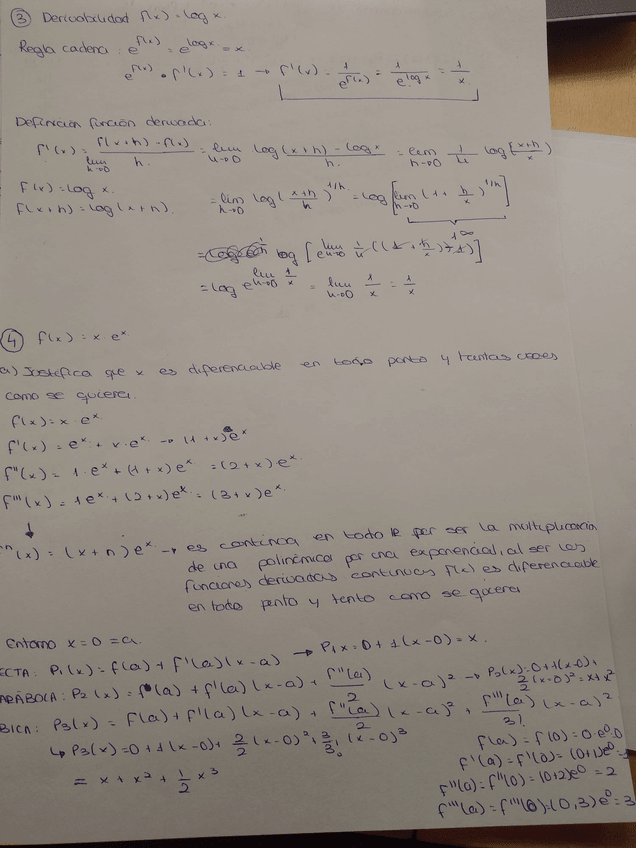 ③ Derivabilidad f(x) = log x.
Regla cadena: e^f(x) = e^log x = x
e^f(x) · f'(x) = 1 → f'(x) = 1/e^f(x) = 1/e^log x = 1/x
Definición función derivada:
f'(x) = lim h→0 f(x+h) - f(x) / h = lim h→0 log(x+h) - log x / h = lim h→0 1/h log[x+h/x)
f(x) = log x.
f(x+h) = log(x+h).
= lim h→0 log(x+h/h)^1/h = log[lim h→0 (1 + h/x)^1/h]
1^∞
= log [e^lim h→0 1/h ((1 + h/x) - 1)]
= log e^lim h→0 1/x = lim h→0 1/x = 1/x
④ f(x) = x · e^x
a) Justifica que x es diferenciable en todo punto y tantas veces
como se quiera.
f(x) = x · e^x
f'(x) = e^x + x · e^x → (1 + x) e^x
f''(x) = 1 · e^x + (1 + x) e^x = (2 + x) e^x
f'''(x) = 1 e^x + (2 + x) e^x = (3 + x) e^x
↓
n(x) = (x + n) e^x → es continua en todo ℝ por ser la multiplicación
de una polinómica por una exponencial, al ser las
funciones derivadas continuas f(x) es diferenciable
en todo punto y tanto como se quiera
Entorno x = 0 = a.
ECTA: P1(x) = f(a) + f'(a)(x - a) → P1x = 0 + 1(x - 0) = x.
ARÁBOLA: P2(x) = f(a) + f'(a)(x - a) + f''(a)/2 (x - a)² → P2(x) = 0 + 1(x - 0) + 2/2 (x - 0)² = x + x²
BICA: P3(x) = f(a) + f'(a)(x - a) + f''(a)/2 (x - a)² + f'''(a)/3! (x - a)²
↳ P3(x) = 0 + 1(x - 0) + 2/2 (x - 0)² + 3/3! (x - 0)³
= x + x² + 1/2 x³
f(a) = f(0) = 0 · e^0 = 0
f'(a) = f'(0) = (0+1)e^0 =
f''(a) = f''(0) = (0+2)e^0 = 2
f'''(a) = f'''(0) = (0,3) e^0 = 3